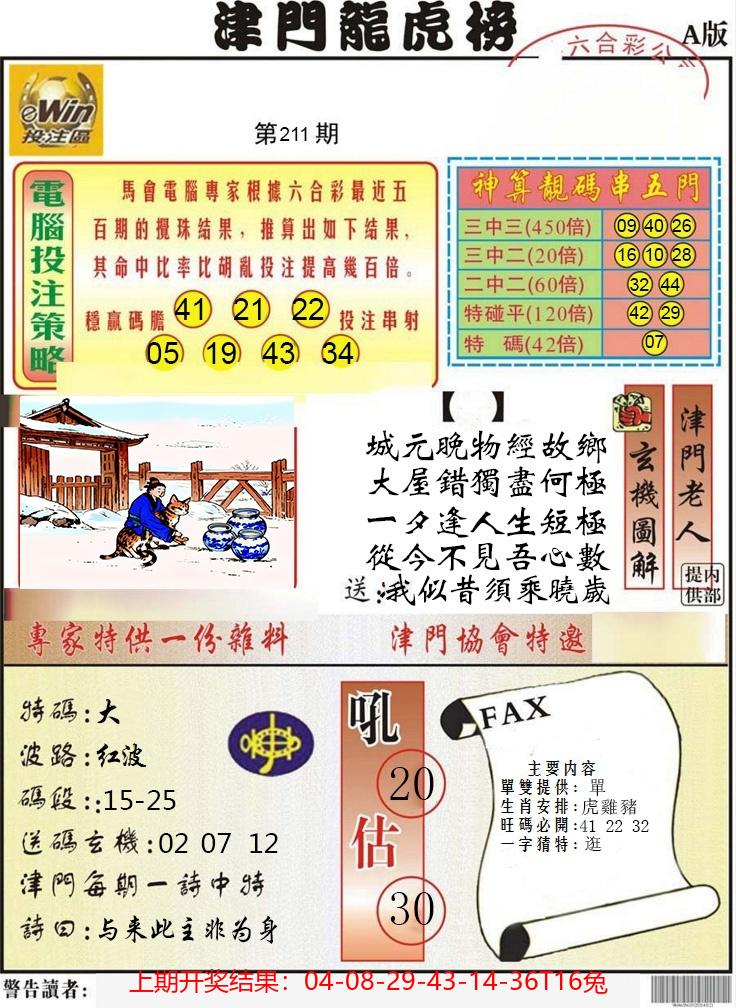 津門龍虎榜
A版
六合彩公
eWin
投注區
第211期
電腦投注策略
馬會電腦專家根據六合彩最近五
百期的攪珠结果，推算出如下结果，
其命中比率比胡亂投注提高幾百倍。
穩贏碼膽 41 21 22 投注串射
05 19 43 34
神算靚碼串五門
三中三(450倍) 09 40 26
三中二(20倍) 16 10 28
二中二(60倍) 32 44
特碰平(120倍) 42 29
特 碼(42倍) 07
【 】
城元晚物經故鄉
大屋錯獨盡何極
一夕逢人生短極
從今不見吾心數
送:我似昔須乘曉歲
玄機圖解
津門老人
内部提供
專家特供一份雜料
津門協會特邀
特碼:大
波路:红波
碼段::15-25
送碼玄機:02 07 12
津門每期一詩中特
詩曰:与来此主非为身
吼
20
估
30
FAX
主要内容
單雙提供:單
生肖安排:虎雞豬
旺码必開:41 22 32
一字猜特:逛
警告讀者:
上期开奖结果：04-08-29-43-14-36T16兔